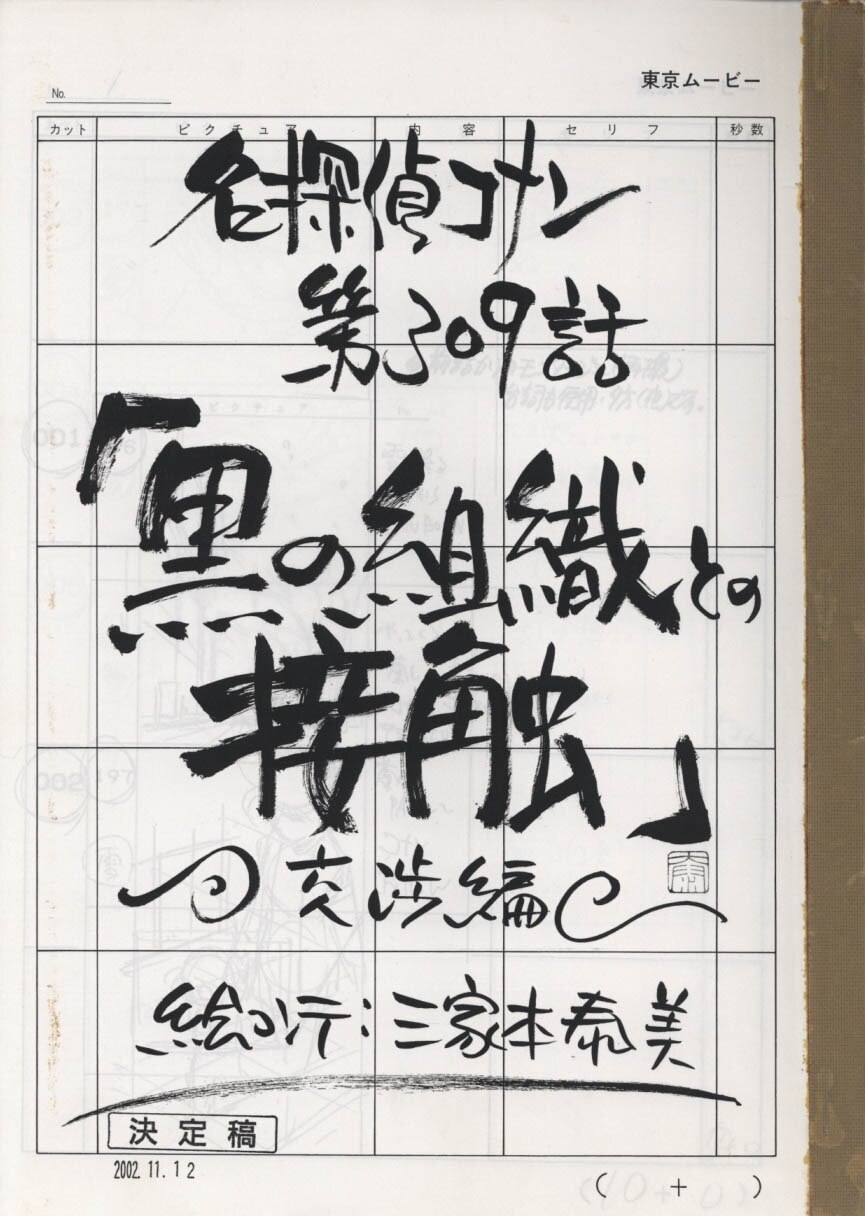 東京ムービー
No. 1
カット ピクチュア 内容 セリフ 秒数
名探偵コナン
第309話
「黒の組織との
接触」
交渉編
絵コンテ:三家本泰美
決定稿
2002.11.12
( + )